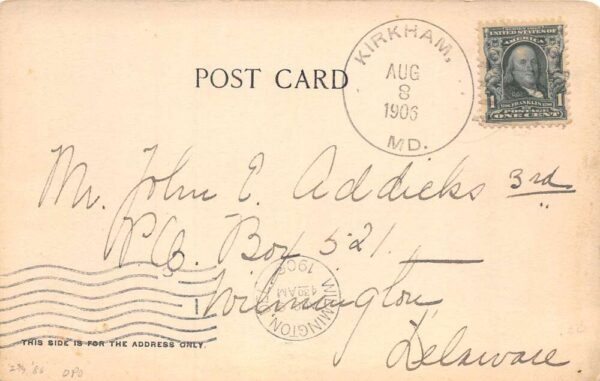 POST CARD
KIRKHAM,
AUG
8
1906
MD.
UNITED STATES OF
AMERICA
1 FRANKLIN 1
POSTAGE
ONE CENT
Mr. John E. Addicks 3rd
P.O. Box 521
Wilmington
Delaware
WILMINGTON,
AM
1906
THIS SIDE IS FOR THE ADDRESS ONLY.
DPO